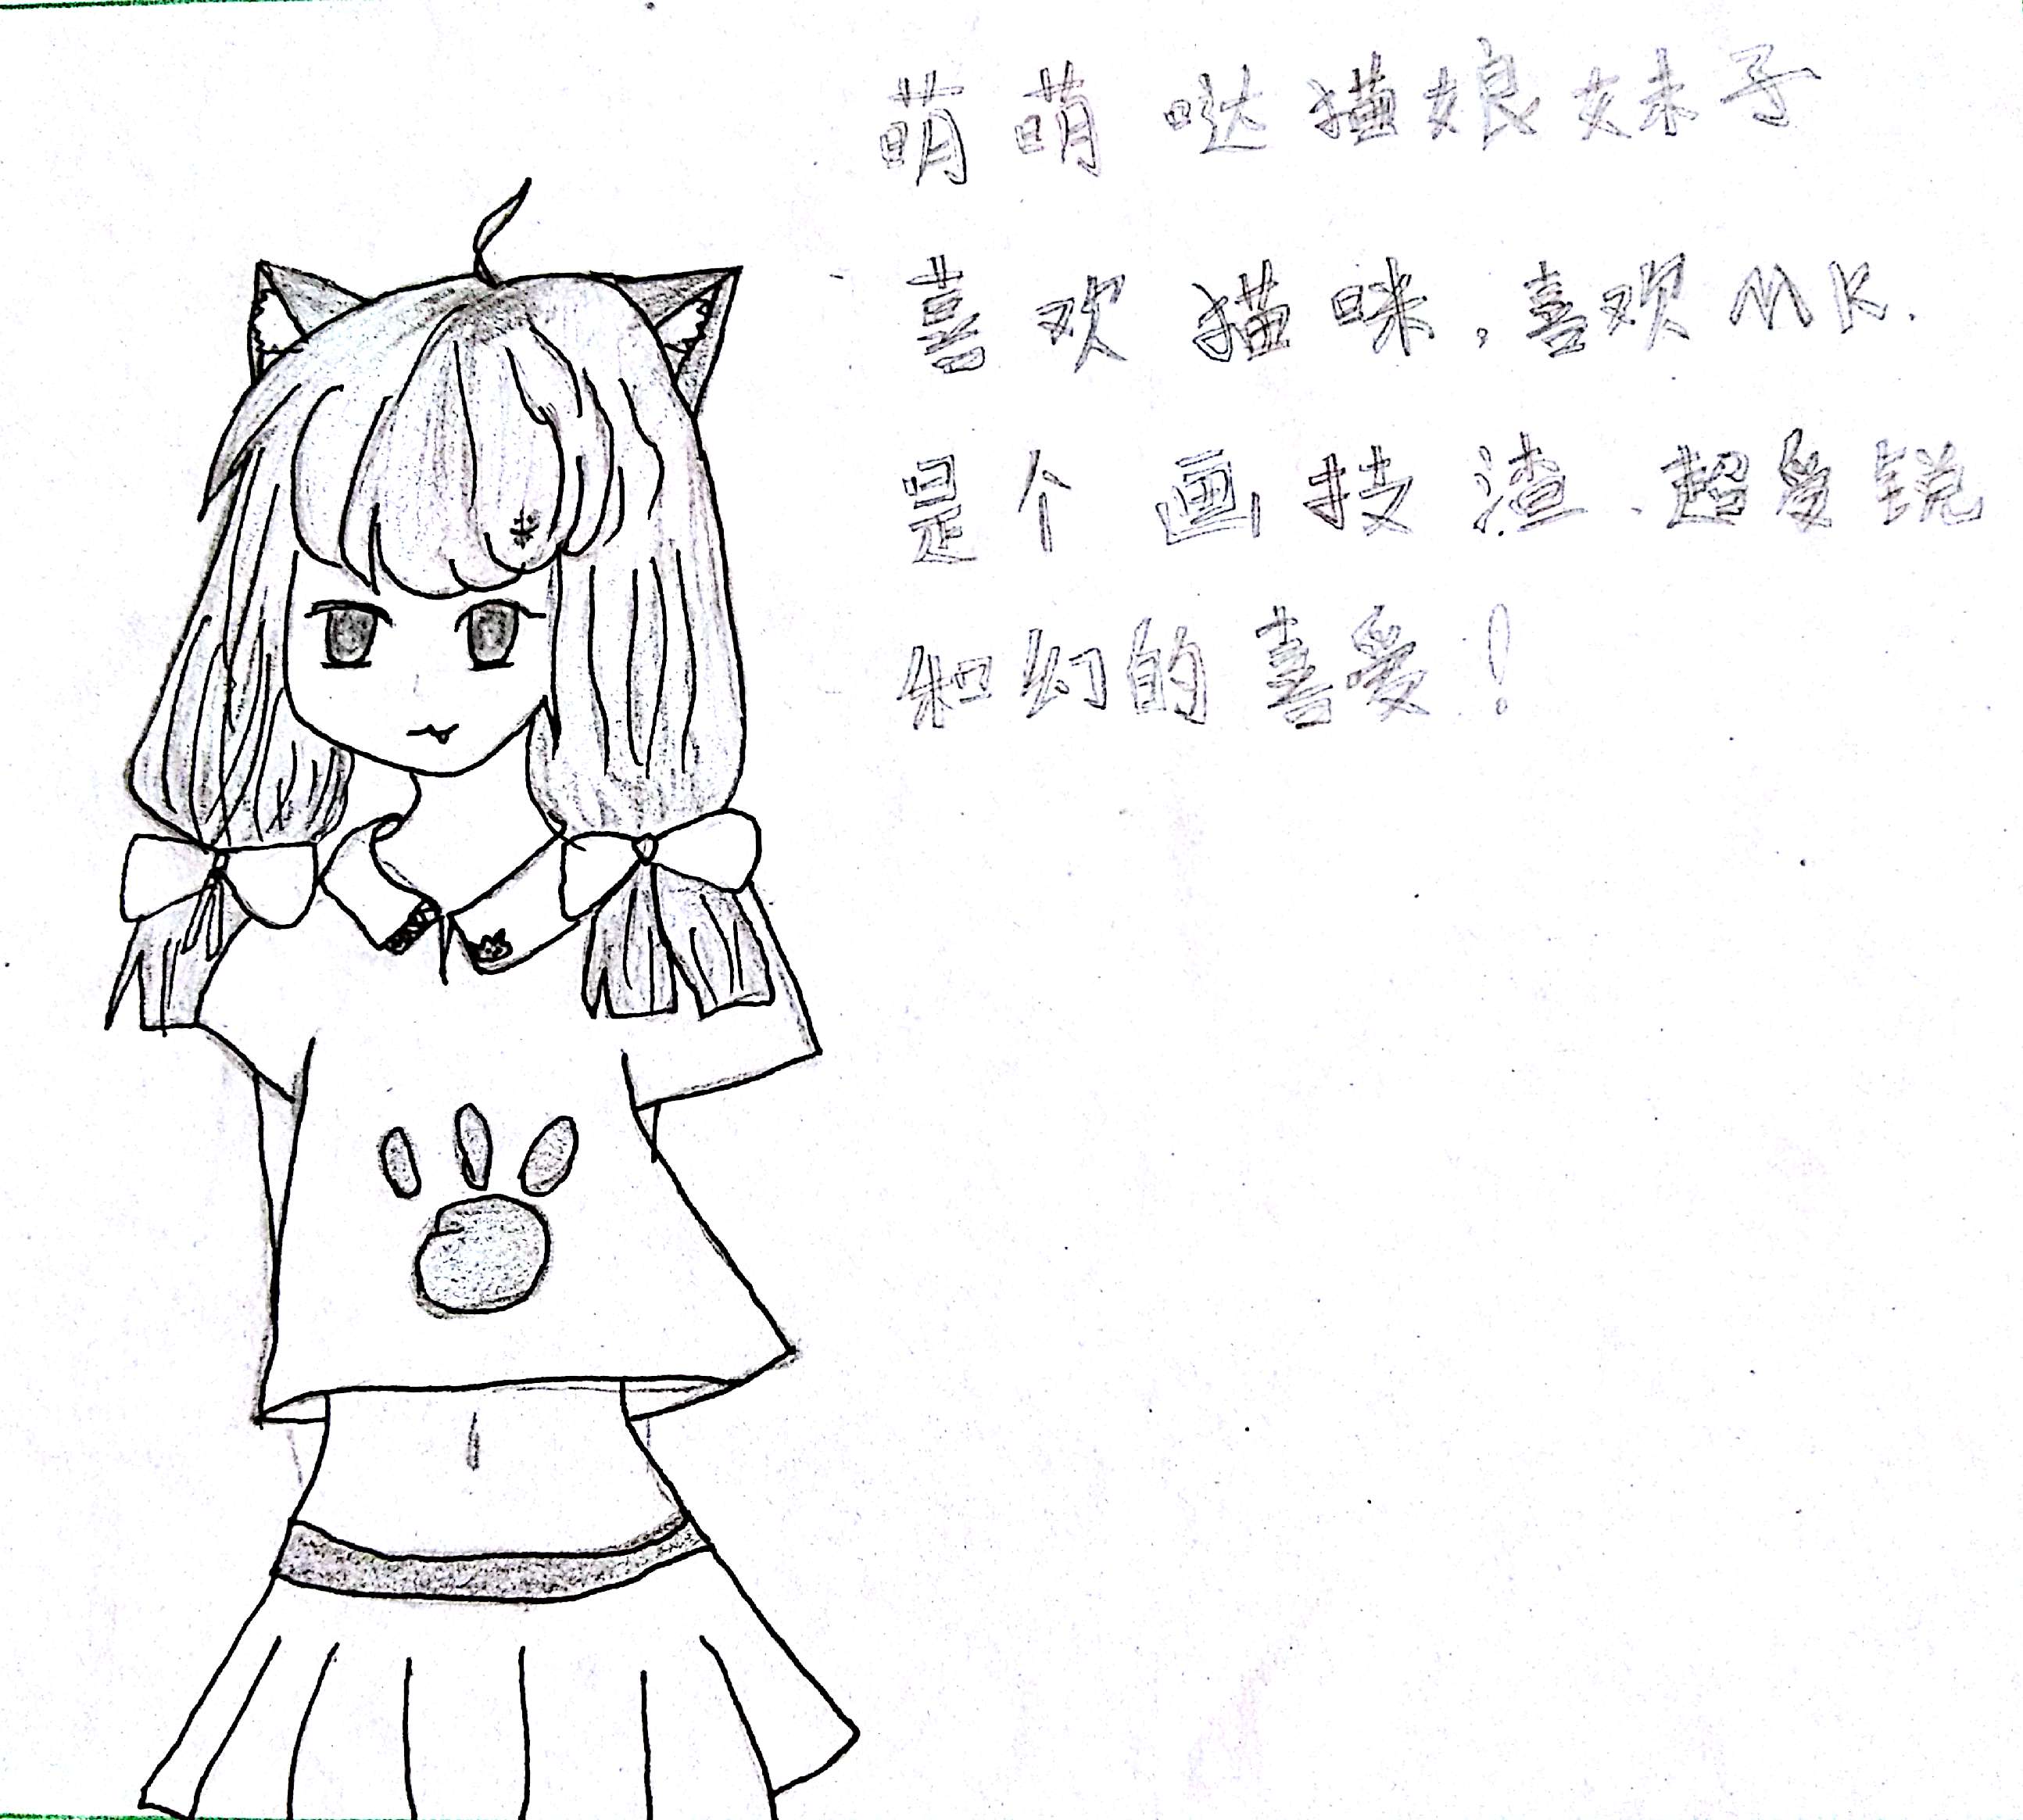 萌萌哒猫娘妹子
喜欢猫咪,喜欢MK.
是个画技渣.超爱锐
和幻的喜爱!